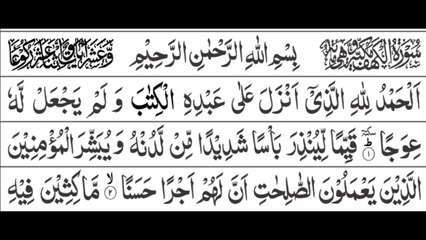 سُوْرَةُ الْكَهْفِ مَكِّيَّةٌ وَّهِيَ مِائَةٌ بِسْمِ اللّٰهِ الرَّحْمٰنِ الرَّحِيْمِ وَّعَشْرُ اٰيَاتٍ وَّاثْنَا عَشَرَ رُكُوْعًا
اَلْحَمْدُ لِلّٰهِ الَّذِيْۤ اَنْزَلَ عَلٰى عَبْدِهِ الْكِتٰبَ وَ لَمْ يَجْعَلْ لَّهٗ
عِوَجًا ؕٚ ۱ قَيِّمًا لِّيُنْذِرَ بَاْسًا شَدِيْدًا مِّنْ لَّدُنْهُ وَ يُبَشِّرَ الْمُؤْمِنِيْنَ
الَّذِيْنَ يَعْمَلُوْنَ الصّٰلِحٰتِ اَنَّ لَهُمْ اَجْرًا حَسَنًا ۙ ۲ مَّاكِثِيْنَ فِيْهِ